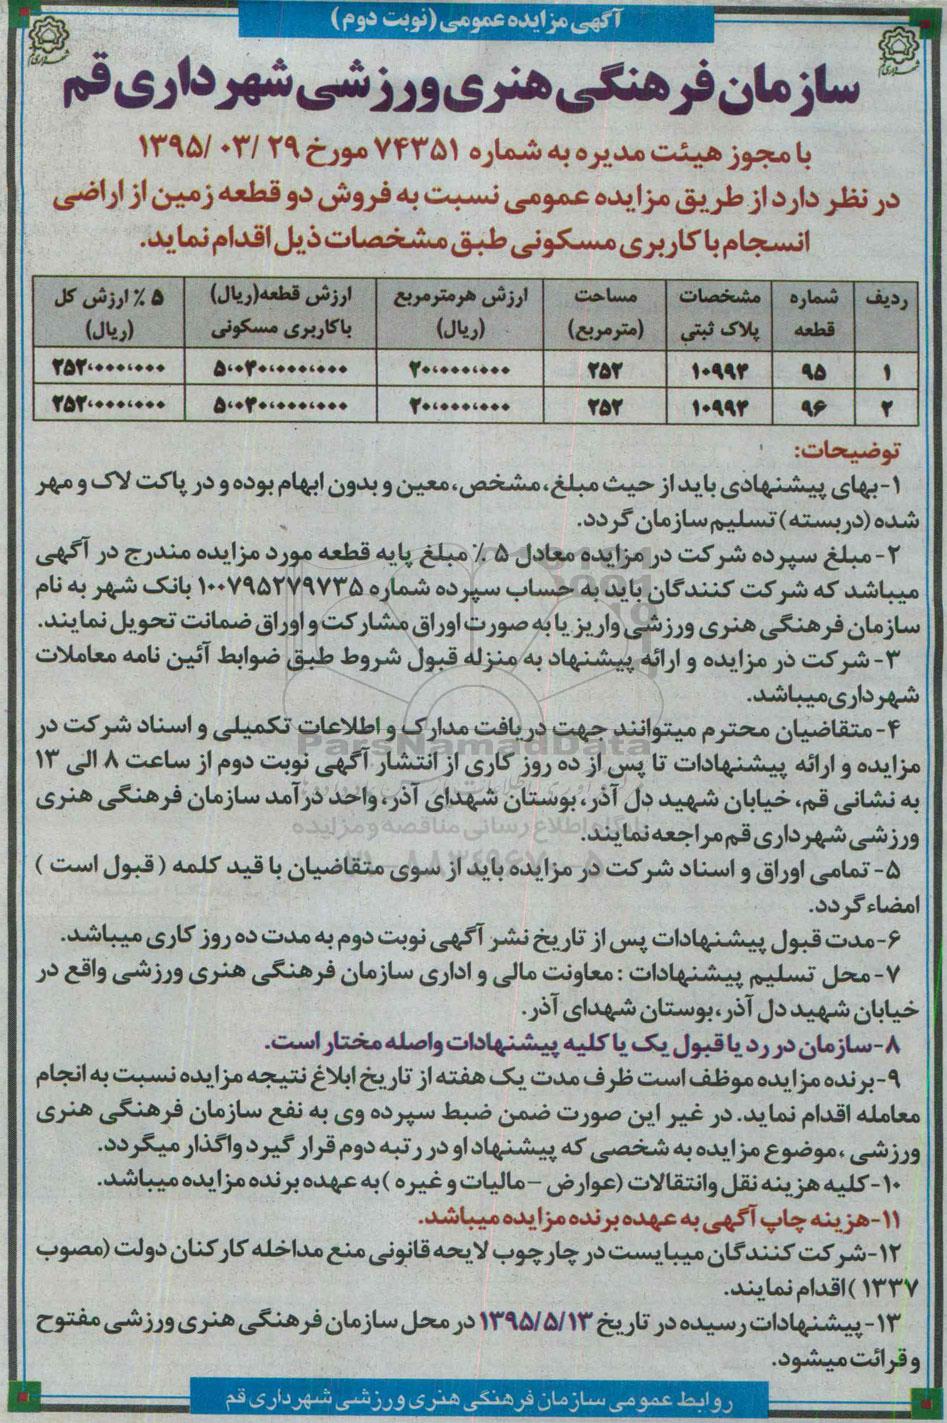 آگهی مزایده عمومی (نوبت دوم)
سازمان فرهنگی هنری ورزشی شهرداری قم
با مجوز هیئت مدیره به شماره ۷۴۳۵۱ مورخ ۲۹ /۰۳ /۱۳۹۵
در نظر دارد از طریق مزایده عمومی نسبت به فروش دو قطعه زمین از اراضی
انسجام با کاربری مسکونی طبق مشخصات ذیل اقدام نماید.
ردیف شماره قطعه مشخصات پلاک ثبتی مساحت (مترمربع) ارزش هرمترمربع (ریال) ارزش قطعه(ریال) باکاربری مسکونی ۵ ٪ ارزش کل (ریال)
۱ ۹۵ ۱۰۹۹۴ ۲۵۲ ۲۰،۰۰۰،۰۰۰ ۵،۰۴۰،۰۰۰،۰۰۰ ۲۵۲،۰۰۰،۰۰۰
۲ ۹۶ ۱۰۹۹۴ ۲۵۲ ۲۰،۰۰۰،۰۰۰ ۵،۰۴۰،۰۰۰،۰۰۰ ۲۵۲،۰۰۰،۰۰۰
توضیحات:
۱-بهای پیشنهادی باید از حیث مبلغ، مشخص، معین و بدون ابهام بوده و در پاکت لاک و مهر
شده (دربسته) تسلیم سازمان گردد.
۲- مبلغ سپرده شرکت در مزایده معادل ۵ ٪ مبلغ پایه قطعه مورد مزایده مندرج در آگهی
میباشد که شرکت کنندگان باید به حساب سپرده شماره ۱۰۰۷۹۵۲۷۹۷۳۵ بانک شهر به نام
سازمان فرهنگی هنری ورزشی واریز یا به صورت اوراق مشارکت و اوراق ضمانت تحویل نمایند.
۳- شرکت در مزایده و ارائه پیشنهاد به منزله قبول شروط طبق ضوابط آئین نامه معاملات
شهرداری میباشد.
۴- متقاضیان محترم میتوانند جهت دریافت مدارک و اطلاعات تکمیلی و اسناد شرکت در
مزایده و ارائه پیشنهادات تا پس از ده روز کاری از انتشار آگهی نوبت دوم از ساعت ۸ الی ۱۳
به نشانی قم، خیابان شهید دل آذر، بوستان شهدای آذر، واحد درآمد سازمان فرهنگی هنری
ورزشی شهرداری قم مراجعه نمایند.
۵- تمامی اوراق و اسناد شرکت در مزایده باید از سوی متقاضیان با قید کلمه ( قبول است )
امضاء گردد.
۶-مدت قبول پیشنهادات پس از تاریخ نشر آگهی نوبت دوم به مدت ده روز کاری میباشد.
۷- محل تسلیم پیشنهادات : معاونت مالی و اداری سازمان فرهنگی هنری ورزشی واقع در
خیابان شهید دل آذر، بوستان شهدای آذر.
۸-سازمان در رد یا قبول یک یا کلیه پیشنهادات واصله مختار است.
۹-برنده مزایده موظف است ظرف مدت یک هفته از تاریخ ابلاغ نتیجه مزایده نسبت به انجام
معامله اقدام نماید. در غیر این صورت ضمن ضبط سپرده وی به نفع سازمان فرهنگی هنری
ورزشی ، موضوع مزایده به شخصی که پیشنهاد او در رتبه دوم قرار گیرد واگذار میگردد.
۱۰-کلیه هزینه نقل وانتقالات (عوارض -مالیات و غیره ) به عهده برنده مزایده میباشد.
۱۱-هزینه چاپ آگهی به عهده برنده مزایده میباشد.
۱۲-شرکت کنندگان میبایست در چارچوب لایحه قانونی منع مداخله کارکنان دولت (مصوب
۱۳۳۷ ) اقدام نمایند.
۱۳-پیشنهادات رسیده در تاریخ ۱۳۹۵/۵/۱۳ در محل سازمان فرهنگی هنری ورزشی مفتوح
و قرائت میشود.
روابط عمومی سازمان فرهنگی هنری ورزشی شهرداری قم
ParsNamadData
پایگاه اطلاع رسانی مناقصه و مزایده